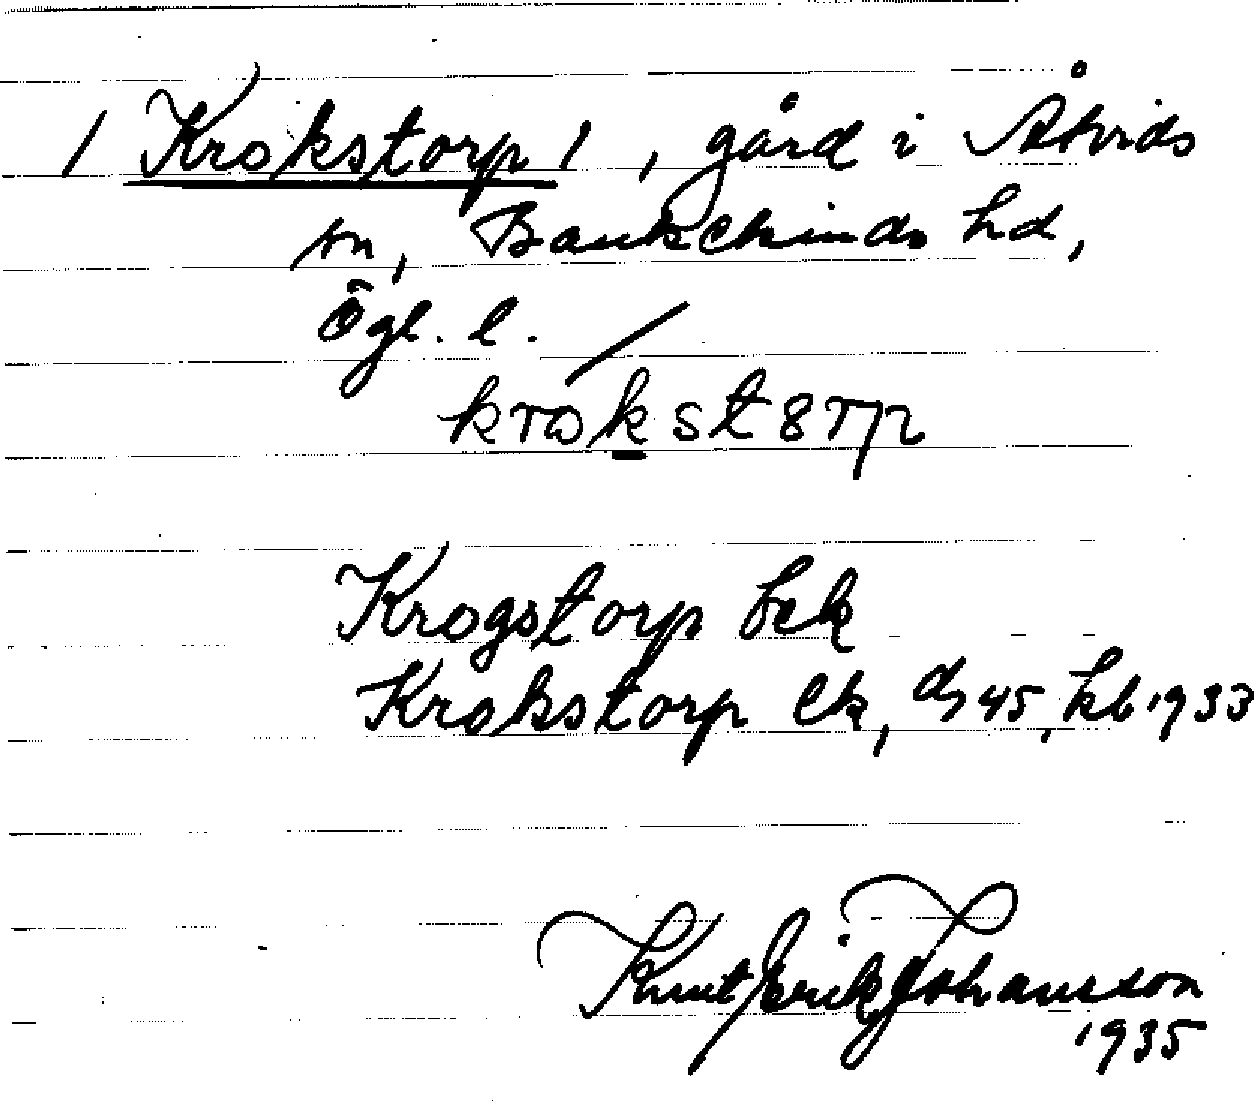 / Krokstorp /, gård i Åtvids
sn, Bankekinds hd,
Ögl. l. /
krokst8rp
Krogstorp bek
Krokstorp Ek, ds 45, kb 1933
Knut Erik Johansson
1935